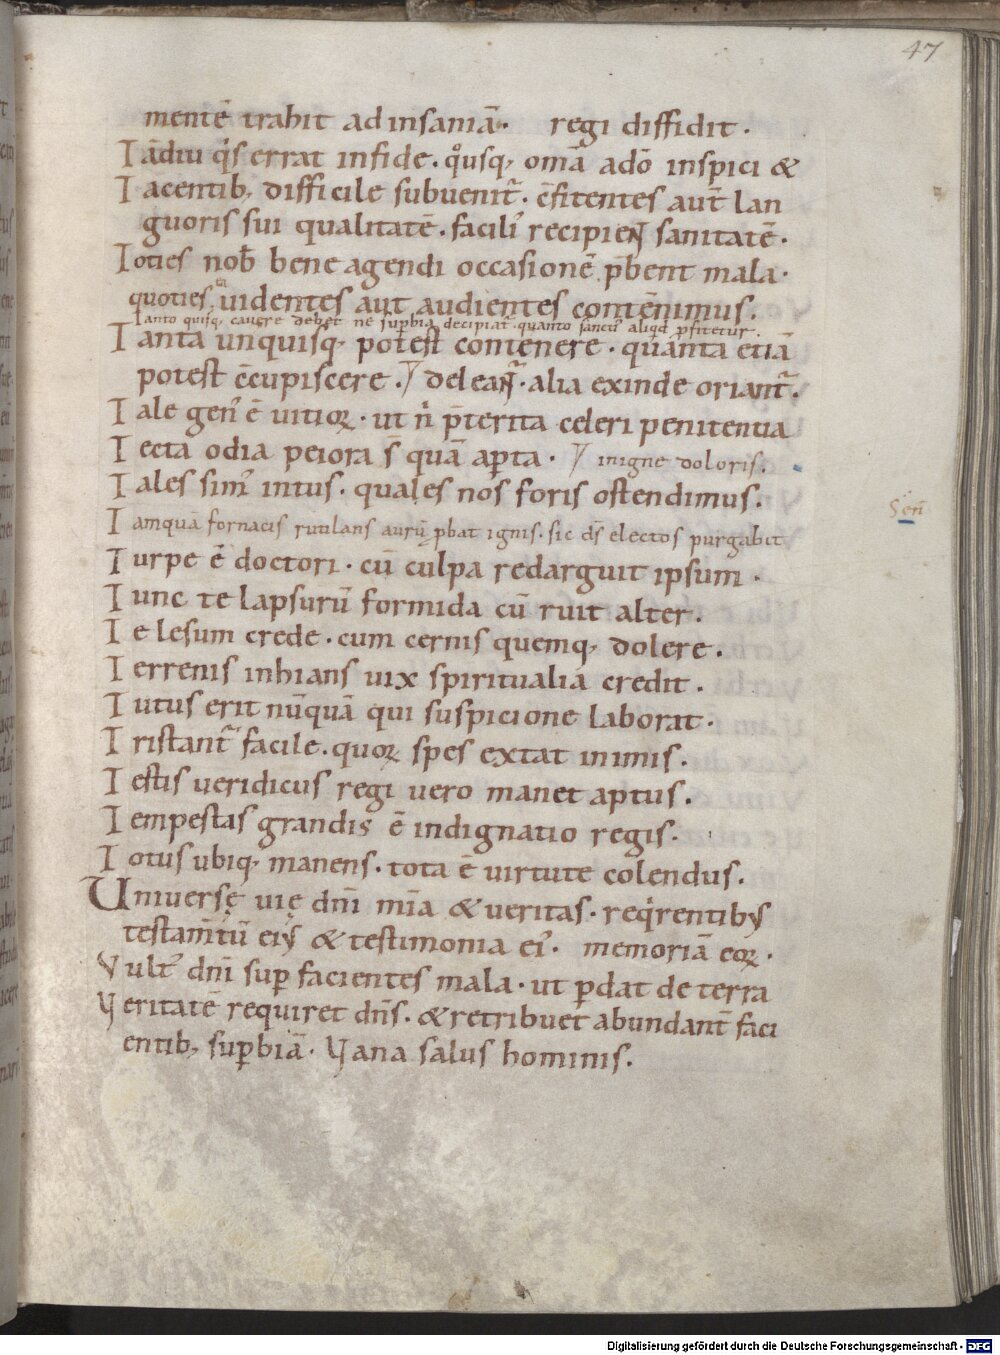 47
mentē trahit ad insaniā· regi diffidit·
Tādiu q̇s errat infide· q̊usq; omā adō inspici &
Tacentib; difficile subuenit᷑· c̄fitentes aut̄ lan
guoris sui qualitatē· facili᷑ recipien̄ sanitatē·
Toties nob̄ bene agendi occasionē p̄bent mala·
quoties uidentes aut audientes contēnimus·
Tanto quisq; cauere debet ne sup̄bia decipiat᷑· quanto sanctū aliqd p̄fitetur·
Tanta unquisq; potest contēnere· quāmta etiā
potest c̄cupiscere· deleant᷑· alia exinde oriant᷑·
Tale gen᷑ ē uitioꝝ· ut n̄ p̄terita celeri penitentia
Tecta odia peiora s̄ quā aꝑta· inigne doloris·
Tales sim᷑ intus· quales nos foris ostendimus·
Tamquā fornacis rutilans aurū ꝓbat ignis· sic ds̄ electos purgabit
Turpe ē doctori· cū culpa redarguit ipsum·
Tunc te lapsurū formida cū ruit alter·
Te lesum crede· cum cernis quemq; dolere·
Terrenis inhians uix spiritualia credit·
Tutus erit nūquā qui suspicione laborat·
Tristant᷑ facile· quoꝝ spes extat inimis·
Testis ueridicus regi uero manet aptus·
Tempestas grandis ē indignatio regis·
Totus ubiq; manens· tota ē uirtute colendus·
Uniuersę uię dn̄i mīa & ueritas· reqͥrentibꝰ
testam̄tū eiꝰ & testimonia ei᷑· memoriā eoꝝ·
Vult᷑ dn̄i suꝑ facientes mala· ut ꝑdat de terra
Veritatē requiret dn̄s· & retribuet abundant̄ faci
entib; suꝑbiā· Vana salus hominis·
Sen̄
Digitalisierung gefördert durch die Deutsche Forschungsgemeinschaft - DFG